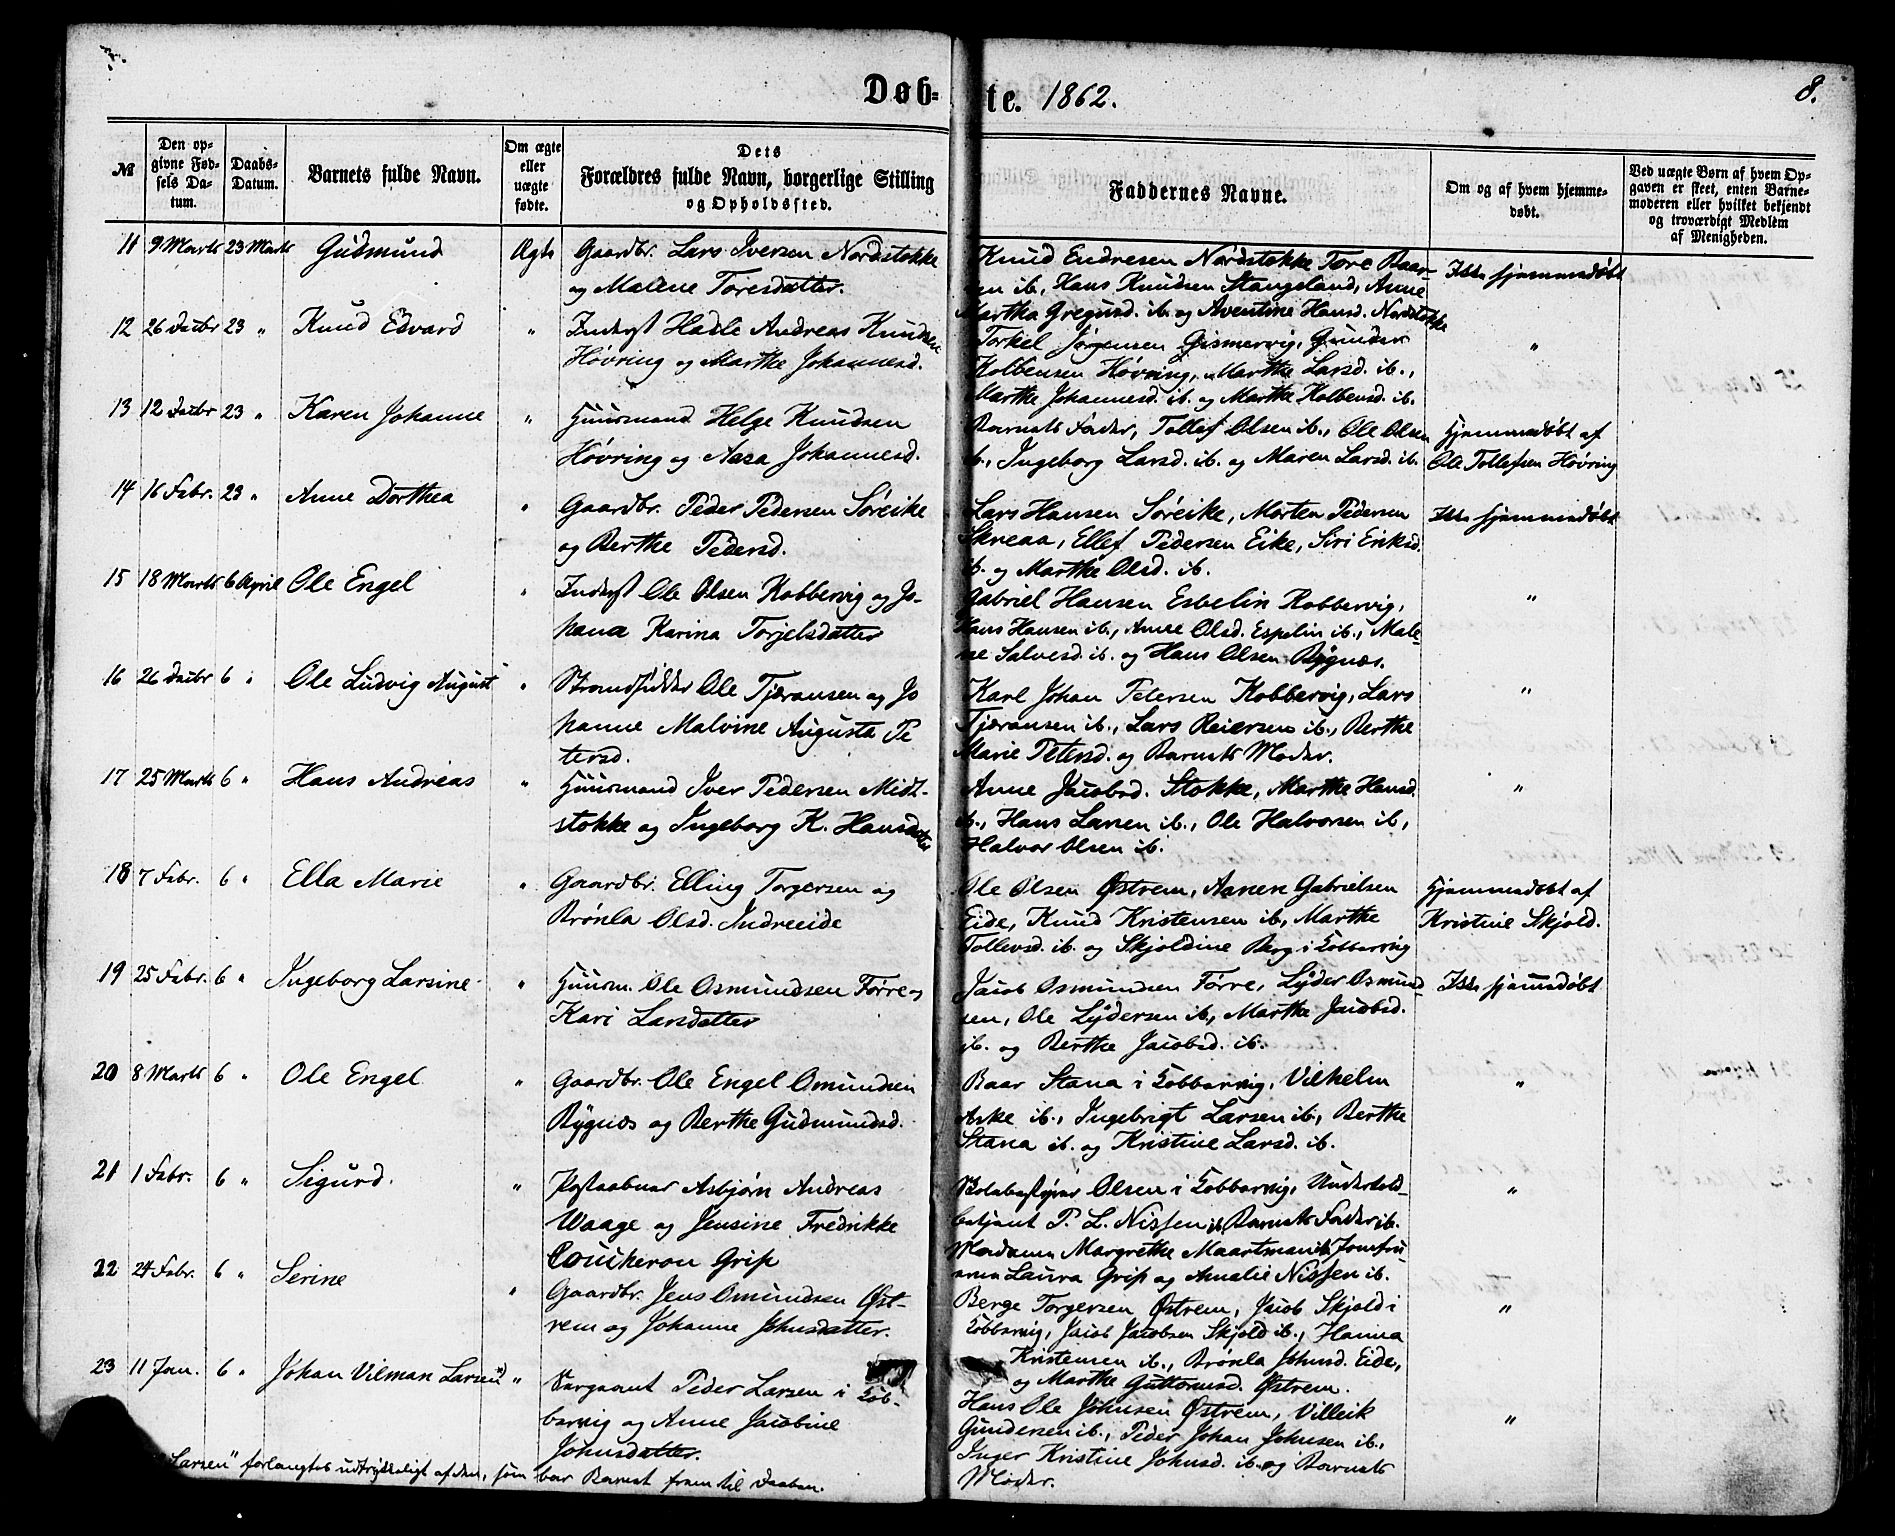 Døb-
te. 1862.
8.
№
Den op-
givne Fød-
sels Da-
tum.
Daabs-
Datum.
Barnets fulde Navn.
Om ægte
eller
uægte
fødte.
Dets
Forældres fulde Navn, borgerlige Stilling
og Opholdssted.
Faddernes Navne.
Om og af hvem hjemme-
døbt.
Ved uægte Børn af hvem Op-
gaven er skeet, enten Barne-
moderen eller hvilket bekjendt
og troværdigt Medlem
af Menigheden.
11 9 Marts 23 Marts Gudmund Ægte Gaardbr. Lars Iversen Nordstokke
og Malene Toresdatter.
Knud Endresen Nordstokke Tore Baar-
sen ib., Hans Knudsen Stangeland, Anne
Martha Gregusd. ib. og Aventine Hansd. Nordstokke
Ikke hjemmedøbt
12 26 Febr 23 " Knud Edvard " Inderst Hadle Andreas Knudsen
Høvring og Marthe Johannesd.
Torkel Jørgensen Gismervig, Gunder
Kolbensen Høvring, Marthe Larsd. ib.,
Marthe Johannesd. ib. og Marthe Kolbensd. ib.
"
13 12 Febr 23 " Karen Johanne " Huusmand Helge Knudsen
Høvring og Aasa Johannesd.
Barnets Fader, Tollef Olsen ib., Ole Olsen
ib., Ingeborg Larsd. ib. og Maren Larsd. ib.
Hjemmedøbt af
Ole Tollefsen Høvring
14 16 Febr. 23 " Anne Dorthea " Gaardbr. Peder Pedersen Søreike
og Berthe Pedersd.
Lars Hansen Søreike, Morten Pedersen
Skreaa, Ellef Pedersen Eike, Siri Eriksd.
ib. og Marthe Olsd. ib.
Ikke hjemmedøbt
15 18 Marts 6 April Ole Engel " Inderst Ole Olsen Kobbervig og Jo-
hana Karina Torjelsdatter
Gabriel Hansen Esbelin Kobbervig,
Hans Hansen ib., Anne Olsd. Espelin ib., Male-
ne Salvesd. ib. og Hans Olsen Bygnæs.
"
16 26 Febr 6 " Ole Ludvig August " Strandsidder Ole Tjæransen og Jo
hanne Malvine Augusta Pe
tersd.
Karl Johan Petersen Kobbervig, Lars
Tjæransen ib., Lars Reiersen ib., Berthe
Marie Petersd. og Barnets Moder.
"
17 25 Marts 6 " Hans Andreas " Huusmand Iver Pedersen Midt-
stokke og Ingeborg K. Hansdatter
Anne Jacobsd. Stokke, Marthe Hansd.
ib., Hans Larsen ib., Ole Halvorsen ib,
Halvor Olsen ib.
"
18 7 Febr. 6 " Ella Marie " Gaardbr. Elling Torgersen og
Brønla Olsd. Indreeide
Ole Olsen Østrem, Aanen Gabrielsen
Eide, Knud Kristensen ib., Marthe
Tollevsd. ib. og Skjoldine Berg i Kobbervig
Hjemmedøbt af
Kristine Skjold.
19 25 Febr. 6 " Ingeborg Larsine " Huusm. Ole Osmundsen Førre og
Kari Larsdatter
Jacob Osmundsen Førre, Lyder Osmund-
sen, Ole Lydersen ib., Marthe Jacobsd.
ib. og Berthe Jacobsd. ib.
Ikke hjemmedøbt
20 8 Marts 6 " Ole Engel " Gaardbr. Ole Engel Omundsen
Bygnæs og Berthe Gudmundsd.
Baar Stana i Kobbervig, Vilhelm
Aske ib., Ingebrigt Larsen ib., Berthe
Stana ib. og Kristine Larsd. ib.
"
21 1 Febr. 6 " Sigurd. " Postaabner Asbjørn Andreas
Waage og Jensine Fredrikke
Coucheron Grip
Skolebestyrer Olsen i Kobbervig, Undertold-
betjent P. L. Nissen ib, Barnets Fader ib.
Madame Margrethe Maartmann ib, Jomfru
erne Laura Grip og Amalie Nissen ib.
"
22 24 Febr. 6 " Serine " Gaardbr. Jens Omundsen Øst-
rem og Johanne Johnsdatter.
Berge Torgersen Østrem, Jacob Skjold i
Kobbervig, Jacob Jacobsen Skjold ib., Hanna
Kristensen ib., Brønla Johnsd. Eide,
og Marthe Guttormsd. Østrem.
"
23 11 Jan. 6 " Johan Vilman Larsen *) " Sergeant Peder Larsen i Kob-
bervig og Anne Jacobine
Johnsdatter.
Hans Ole Johnsen Østrem, Villeik
Gundersen ib., Peder Johan Johnsen ib.,
Inger Kristine Johnsd. ib. og Barnets
Moder.
"
Larsen" forlangtes udtrykkeligt af den, som bar Barnet frem til Daaben.